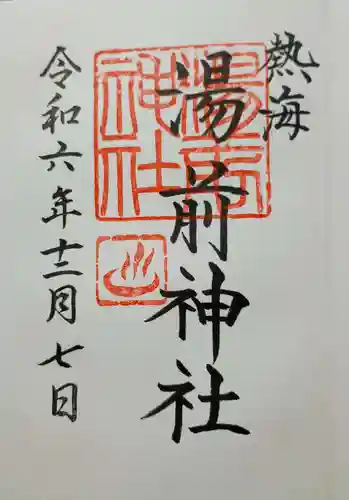 熱海
湯前神社
湯前
神社
令和六年十二月七日